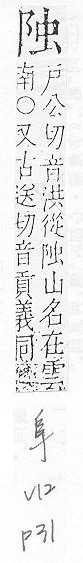 戶公切音洪從 山名在雲
南○又古送切音貢義同
阜
V12
P31